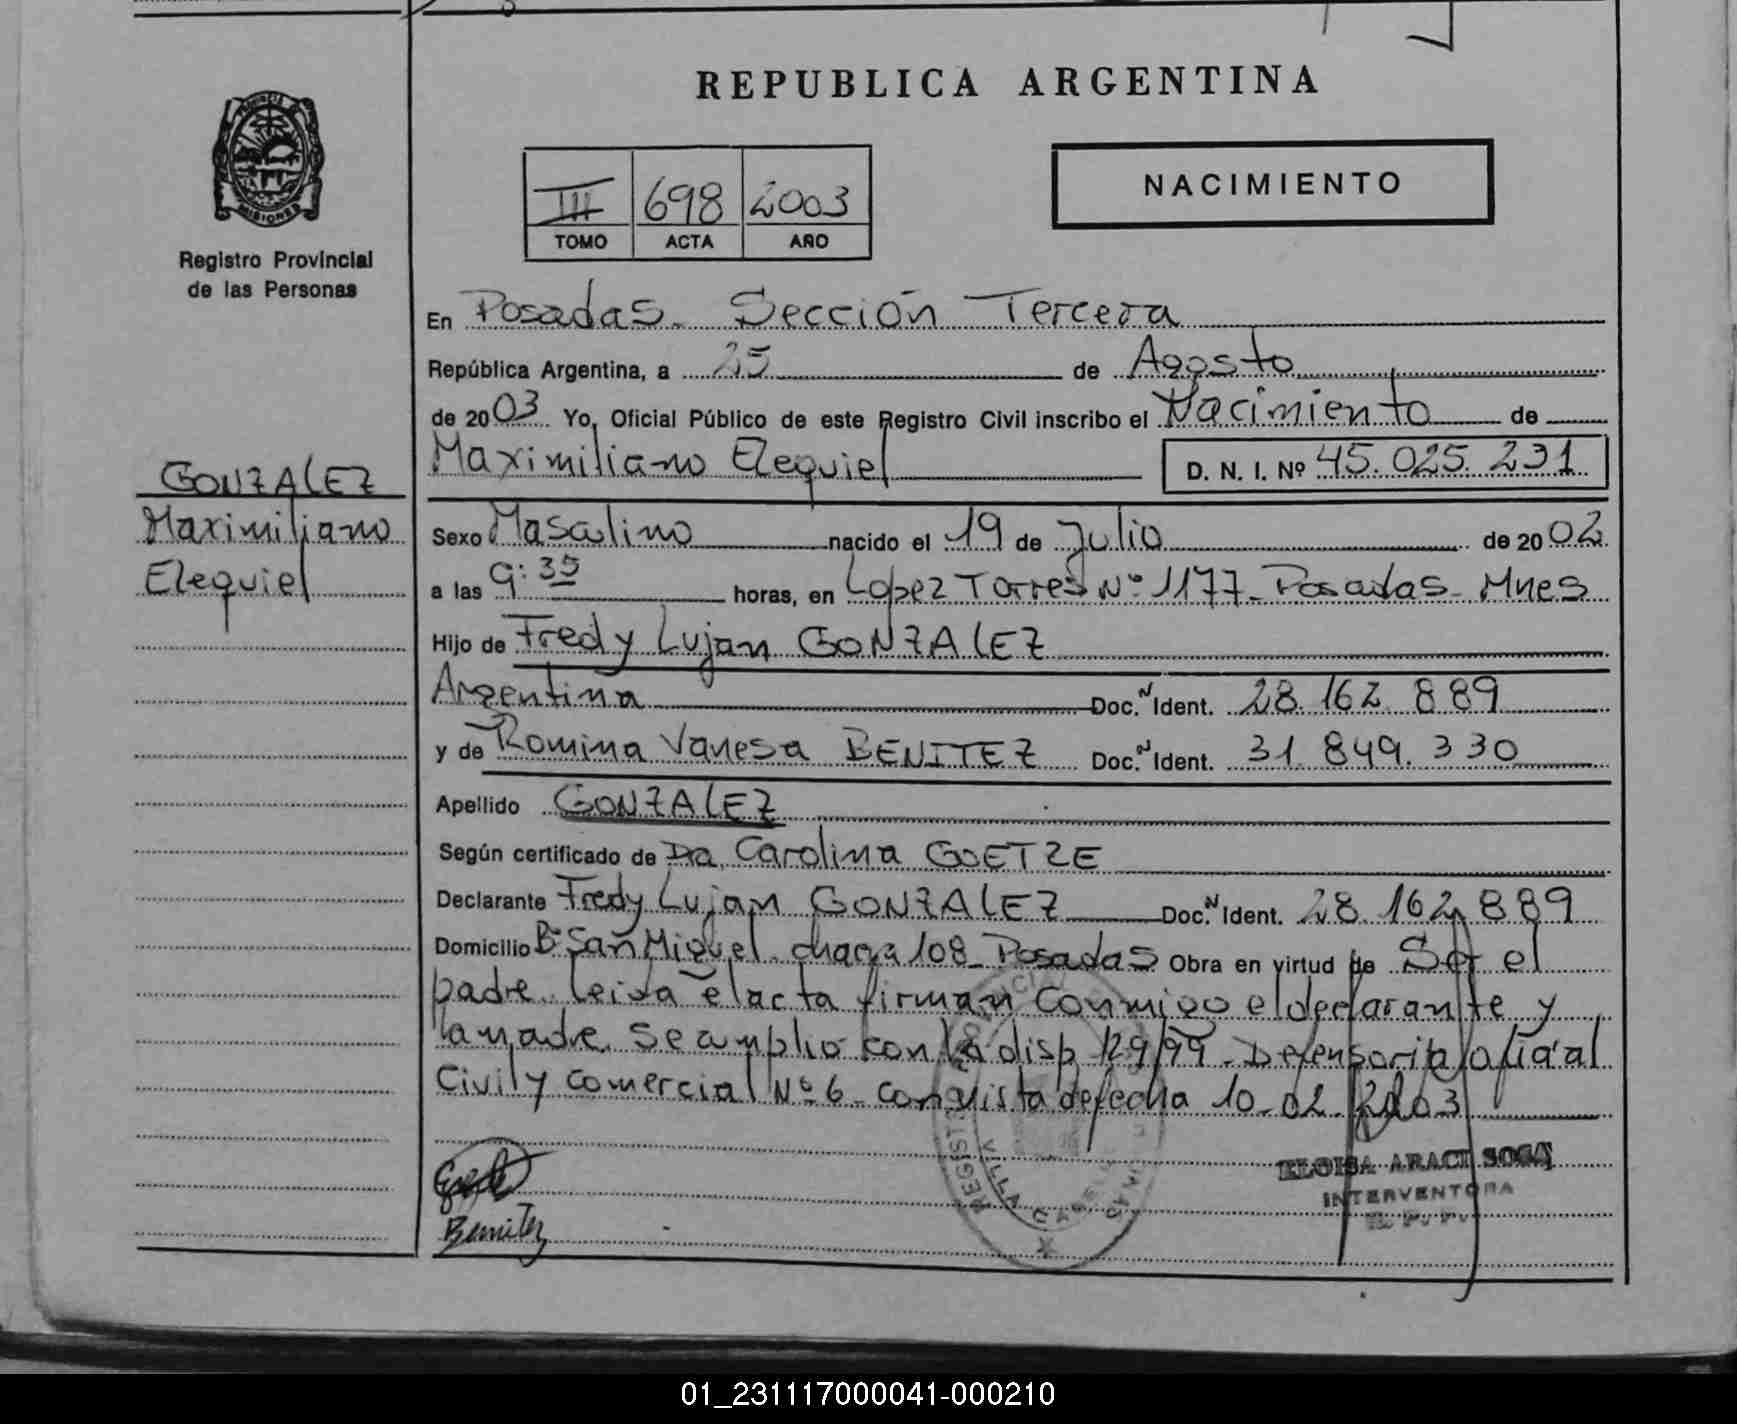 REPUBLICA ARGENTINA
PROVINCIA DE
MISIONES
Registro Provincial
de las Personas
NACIMIENTO
III 698 2003
TOMO ACTA AÑO
En Posadas. Sección Tercera
República Argentina, a 25 de Agosto
de 2003 Yo, Oficial Público de este Registro Civil inscribo el Nacimiento de
Maximiliano Ezequiel D. N. I. Nº 45.025.231
GONZALEZ
Maximiliano
Ezequiel
Sexo Masculino nacido el 19 de Julio de 2002
a las 9:35 horas, en Lopez Torres Nº 1177- Posadas- Mnes
Hijo de Fredy Lujan GONZALEZ
Argentina Doc. N Ident. 28.162.889
y de Romina Vanesa BENITEZ Doc. N Ident. 31.849.330
Apellido GONZALEZ
Según certificado de Dra. Carolina GOETZE
Declarante Fredy Lujan GONZALEZ Doc. N Ident. 28.162.889
Domicilio Bº San Miguel chacra 108- Posadas Obra en virtud de Ser el
padre. leida el acta firman conmigo el declarante y
la madre. Se cumplio con la disp 129/99- Defensoria oficial
Civil y comercial Nº 6- con vista de fecha 10-02-2003
ELOISA ARACI SOSA
INTERVENTORA
R. P. P.
Benitez
REGISTRO PROVINCIAL
VILLA CABELLO
01_231117000041-000210